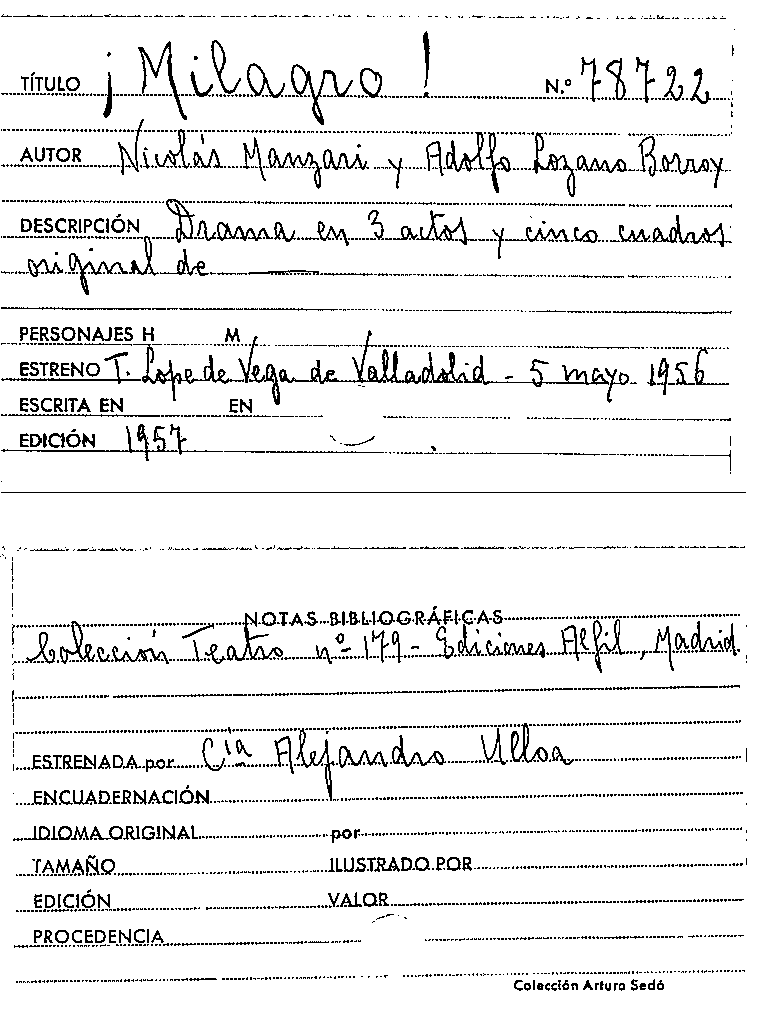 TÍTULO ¡Milagro! N.º 78722
AUTOR Nicolás Manzari y Adolfo Lozano Borroy
DESCRIPCIÓN Drama en 3 actos y cinco cuadros
original de
PERSONAJES H M
ESTRENO T. Lope de Vega de Valladolid - 5 mayo 1956
ESCRITA EN EN
EDICIÓN 1957
NOTAS BIBLIOGRÁFICAS
Colección Teatro nº 179 - Ediciones Alfil, Madrid.
ESTRENADA por Cía Alejandro Ulloa
ENCUADERNACIÓN
IDIOMA ORIGINAL por
TAMAÑO ILUSTRADO POR
EDICIÓN VALOR
PROCEDENCIA
Colección Arturo Sedó